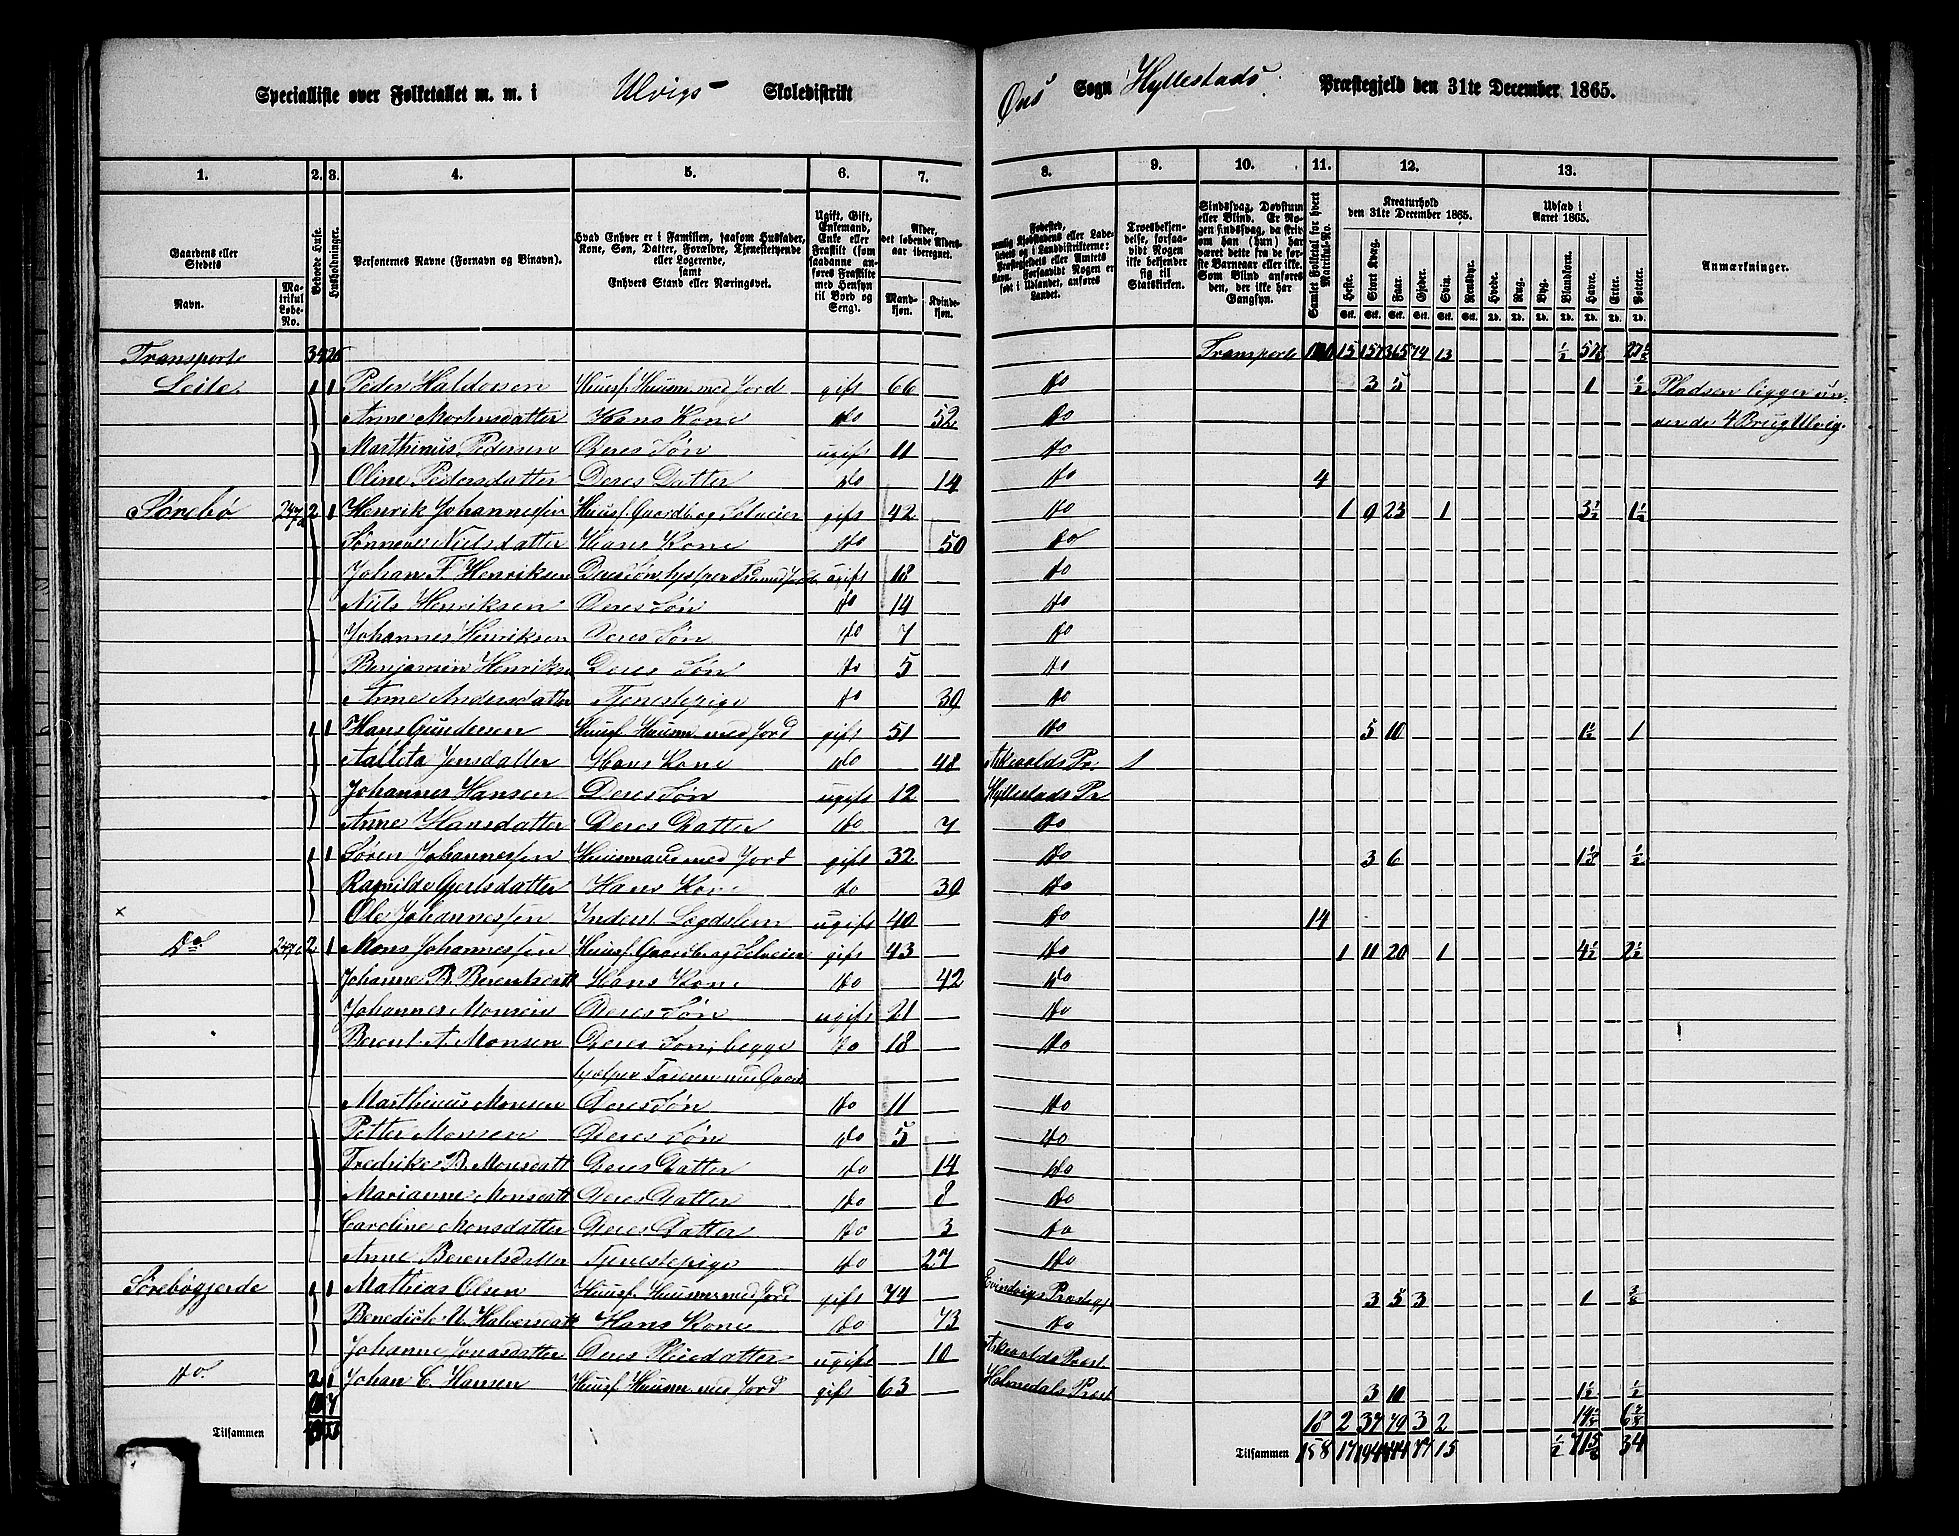 Specialliste over Folketallet m. m. i Ulvigs Skoledistrikt
Øens Sogn Hyllestads Præstegjeld den 31te December 1865.
1. 2. 3. 4. 5. 6. 7. 8. 9. 10. 11. 12. 13.
Gaardens eller Stedets
Navn.
Matrikul Løbe-No.
Beboede Huse.
Husholdninger.
Personernes Navne (Fornavn og Binavn).
Hvad Enhver er i Familien, saasom Husfader, Kone, Søn, Datter, Forældre, Tjenestetyende eller Logerende, samt Enhvers Stand eller Næringsvei.
Ugift, Gift, Enkemand, Enke eller Fraskilt (som saadanne anføres Fraskilte med Hensyn til Bord og Seng).
Alder, det løbende Alders-aar iberegnet.
Mandkjøn.
Kvindekjøn.
Fødested, nemlig Kjøbstadens eller Ladestedets og i Landdistrikterne: Præstegjeldets eller Amtets Navn. Forsaavidt Nogen er født i Udlandet, anføres Landet.
Troesbekjendelse, forsaavidt Nogen ikke bekjender sig til Statskirken.
Sindssvag, Døvstum eller Blind. Er Nogen sindssvag, da skriv om han (hun) har været dette fra de første Barneaar eller ikke. Som Blind anføres den, der ikke har Gangsyn.
Samlet Folketal for hvert Matrikul-No.
Kreaturhold den 31te December 1865.
Heste. Stort Kvæg. Faar. Gjeder. Svin. Rensdyr.
Udsæd i Aaret 1865.
Hvede. Rug. Byg. Blandkorn. Havre. Erter. Poteter.
Anmærkninger.
Transporte Transporte
Leite 1 1 Peder Haldorsen Huusf. Huusm. med Jord gift 66 do 3 5 1 Pladsen ligger un-
Anne Mortensdatter Hans Kone do 52 do der de 4 Brug Ulvig.
Marthinus Pedersen Deres Søn ugift 11 do
Oline Pedersdatter Deres Datter do 14 do 4
Sørebø 2 1 Henrik Johannessen Huusf. Gaardb. og Selveier gift 42 do 1 9 23 1 3½ 1½
Nielsdatter Hans Kone do 50 do
Johan F. Henriksen Deres Søn, hjelper ugift 18 do
Niels Henriksen Deres Søn do 14 do
Johannes Henriksen Deres Søn do 7 do
Benjamin Henriks Deres Søn do 5 do
Anne Andersdatter Tjenestepige do 39 do
1 1 Hans Gundersen Huusf. Huusm. med Jord gift 51 do 5 10 1½ 1
Jonsdatter Hans Kone do 48 Askvolds Pr. 1
Johannes Hansen Deres Søn ugift 12 Hyllestads Pr
Anne Hansdatter Deres Datter do 7 do
1 1 Søren Johannessen Huusmand med Jord gift 32 do 3 6 ½
Hans Kone do 30 do
Ole Johannessen Inderst Lægdslem ugift 40 do 14
Do 2 1 Mons Johannessen Huusf. Gaardb. og Selveier gift 43 do 1 11 20 1 4½ 2½
Johanne B. Berentsdatt Hans Kone do 42 do
Johannes Monsen Deres Søn ugift 21 do
Berent A. Monsen Deres Søn, begge do 18 do
hjelper Faderen med
Marthinus Monsen Deres Søn do 11 do
Petter Monsen Deres Søn do 5 do
Fredrikke B. Monsdatt Deres Datter do 14 do
Marianne Monsdatt Deres Datter do 8 do
Caroline Monsdatter Deres Datter do 3 do
Anne Berentsdatter Tjenestepige do 27 do
Sørebøgjerde 1 1 Mathias Olsen Huusf. Huusm. med Jord gift 74 Evindvigs Præstegj 3 5 3 1
Hans Kone do 73 do
Johanne Jonasdatter Deres Pleiedatter ugift 10 Askvolds Præst
do. 2 1 Johan C. Hansen Huusf. Huusm. med Jord gift 63 Holmedals Præst 3 10 1½ ½
18 2 37 79 3 2
Tilsammen Tilsammen 158 17 15 34